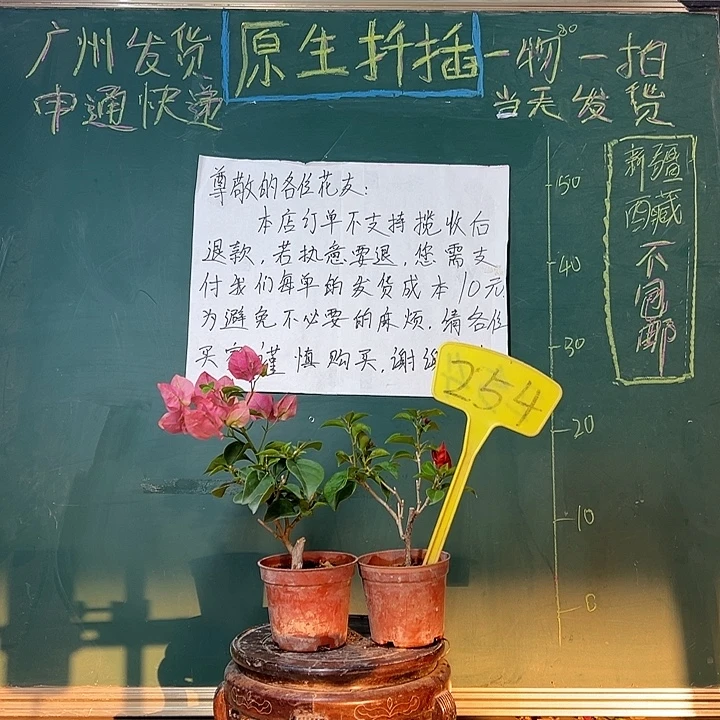 广州发货
申通快递
原生扦插
一物一拍
当天发货
新疆
西藏
不包邮
尊敬的各位花友:
本店订单不支持揽收后
退款,若执意要退,您需支
付我们每单的发货成本10元
为避免不必要的麻烦.请各位
买家谨慎购买,谢谢
254
50
40
30
20
10
0